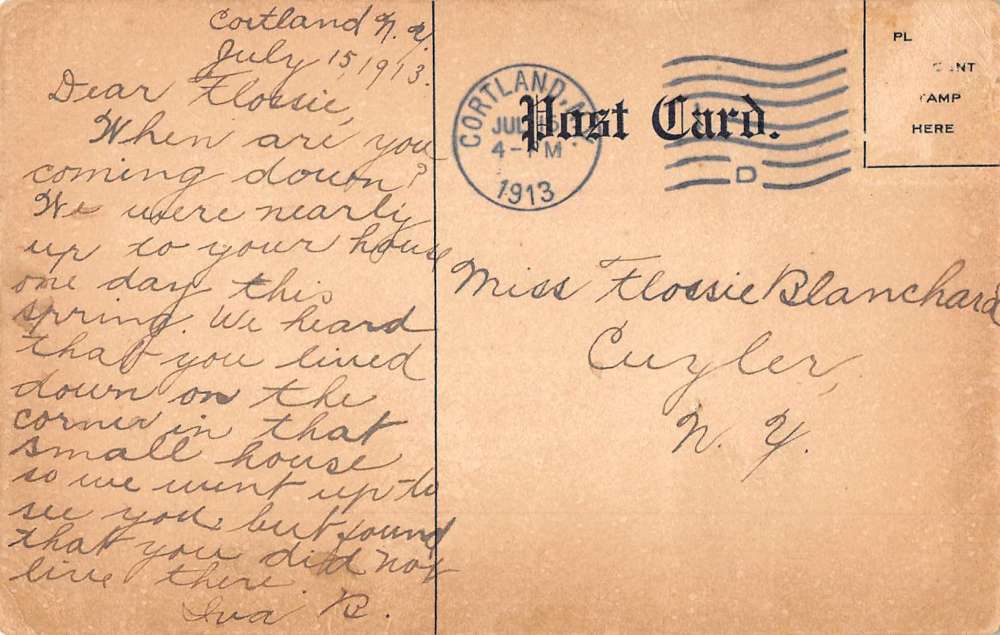 Cortland N. Y.
July 15, 1913.
Dear Flossie,
When are you
coming down?
We were nearly
up to your house
one day this
spring. We heard
that you lived
down on the
corner in that
small house
so we went up to
see you, but found
that you did not
live there.
Iva B.
CORTLAND, N.Y.
JUL 15
4-PM
1913
Post Card.
D
PL
NT
AMP
HERE
Miss Flossie Blanchard
Cuyler,
N. Y.